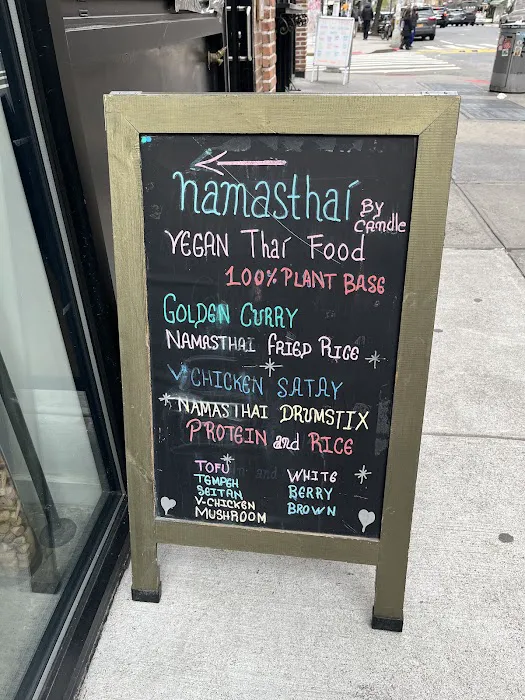 namasthai
By
Candle
VEGAN Thai Food
100% PLANT BASE
GOLDEN CURRY
NAMASTHAI FRIED RICE
V-CHICKEN SATAY
NAMASTHAI DRUMSTIX
PROTEIN and RICE
TOFU
TEMPEH
SEITAN
V-CHICKEN
MUSHROOM
WHITE
BERRY
BROWN